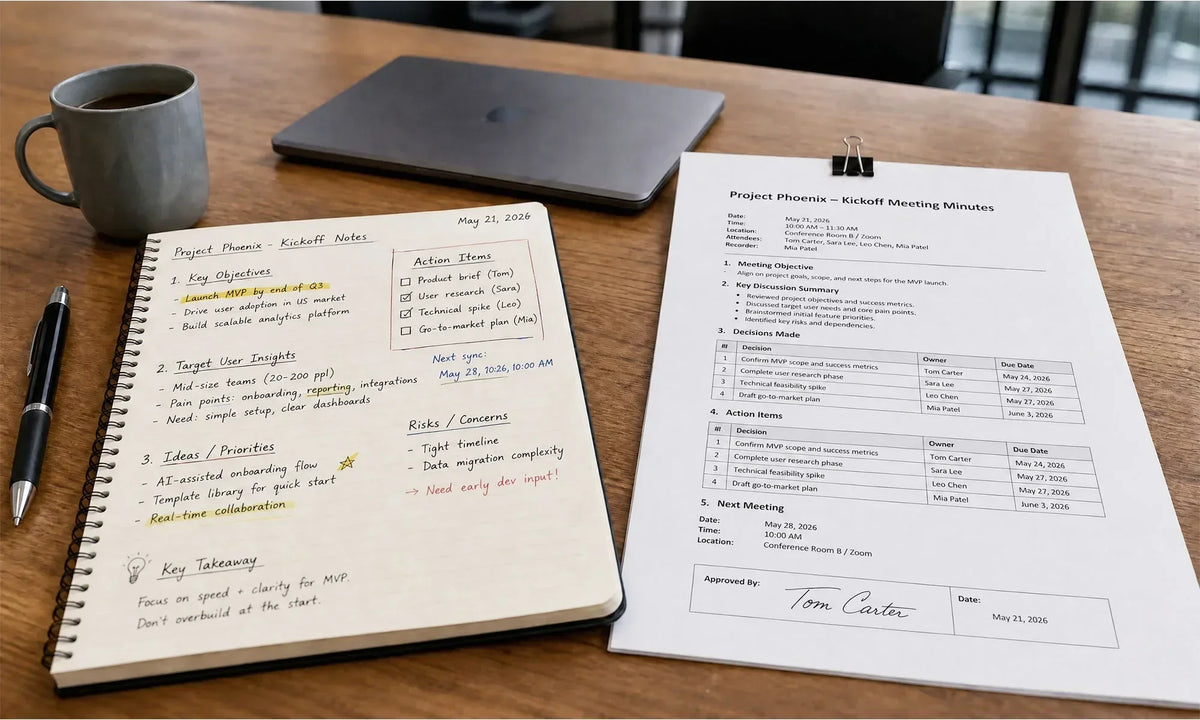 May 21, 2026
Project Phoenix - Kickoff Notes
1. Key Objectives
- Launch MVP by end of Q3
- Drive user adoption in US market
- Build scalable analytics platform
Action Items
☐ Product brief (Tom)
☑ User research (Sara)
☑ Technical spike (Leo)
☐ Go-to-market plan (Mia)
Next sync:
May 28, 10:26, 10:00 AM
2. Target User Insights
- Mid-size teams (20-200 ppl)
- Pain points: onboarding, reporting, integrations
- Need: simple setup, clear dashboards
3. Ideas / Priorities
- AI-assisted onboarding flow
- Template library for quick start
- Real-time collaboration
Risks / Concerns
- Tight timeline
- Data migration complexity
→ Need early dev input!
Key Takeaway
Focus on speed + clarity for MVP.
Don't overbuild at the start.
Project Phoenix – Kickoff Meeting Minutes
Date: May 21, 2026
Time: 10:00 AM – 11:30 AM
Location: Conference Room B / Zoom
Attendees: Tom Carter, Sara Lee, Leo Chen, Mia Patel
Recorder: Mia Patel
1. Meeting Objective
- Align on project goals, scope, and next steps for the MVP launch.
2. Key Discussion Summary
• Reviewed project objectives and success metrics.
• Discussed target user needs and core pain points.
• Brainstormed initial feature priorities.
• Identified key risks and dependencies.
3. Decisions Made
Decision Owner Due Date
1 Confirm MVP scope and success metrics Tom Carter May 24, 2026
2 Complete user research phase Sara Lee May 27, 2026
3 Technical feasibility spike Leo Chen May 27, 2026
4 Draft go-to-market plan Mia Patel June 3, 2026
4. Action Items
Decision Owner Due Date
1 Confirm MVP scope and success metrics Tom Carter May 24, 2026
2 Complete user research phase Sara Lee May 27, 2026
3 Technical feasibility spike Leo Chen May 27, 2026
4 Draft go-to-market plan Mia Patel June 3, 2026
5. Next Meeting
Date: May 28, 2026
Time: 10:00 AM
Location: Conference Room B / Zoom
Approved By: Tom Carter Date: May 21, 2026